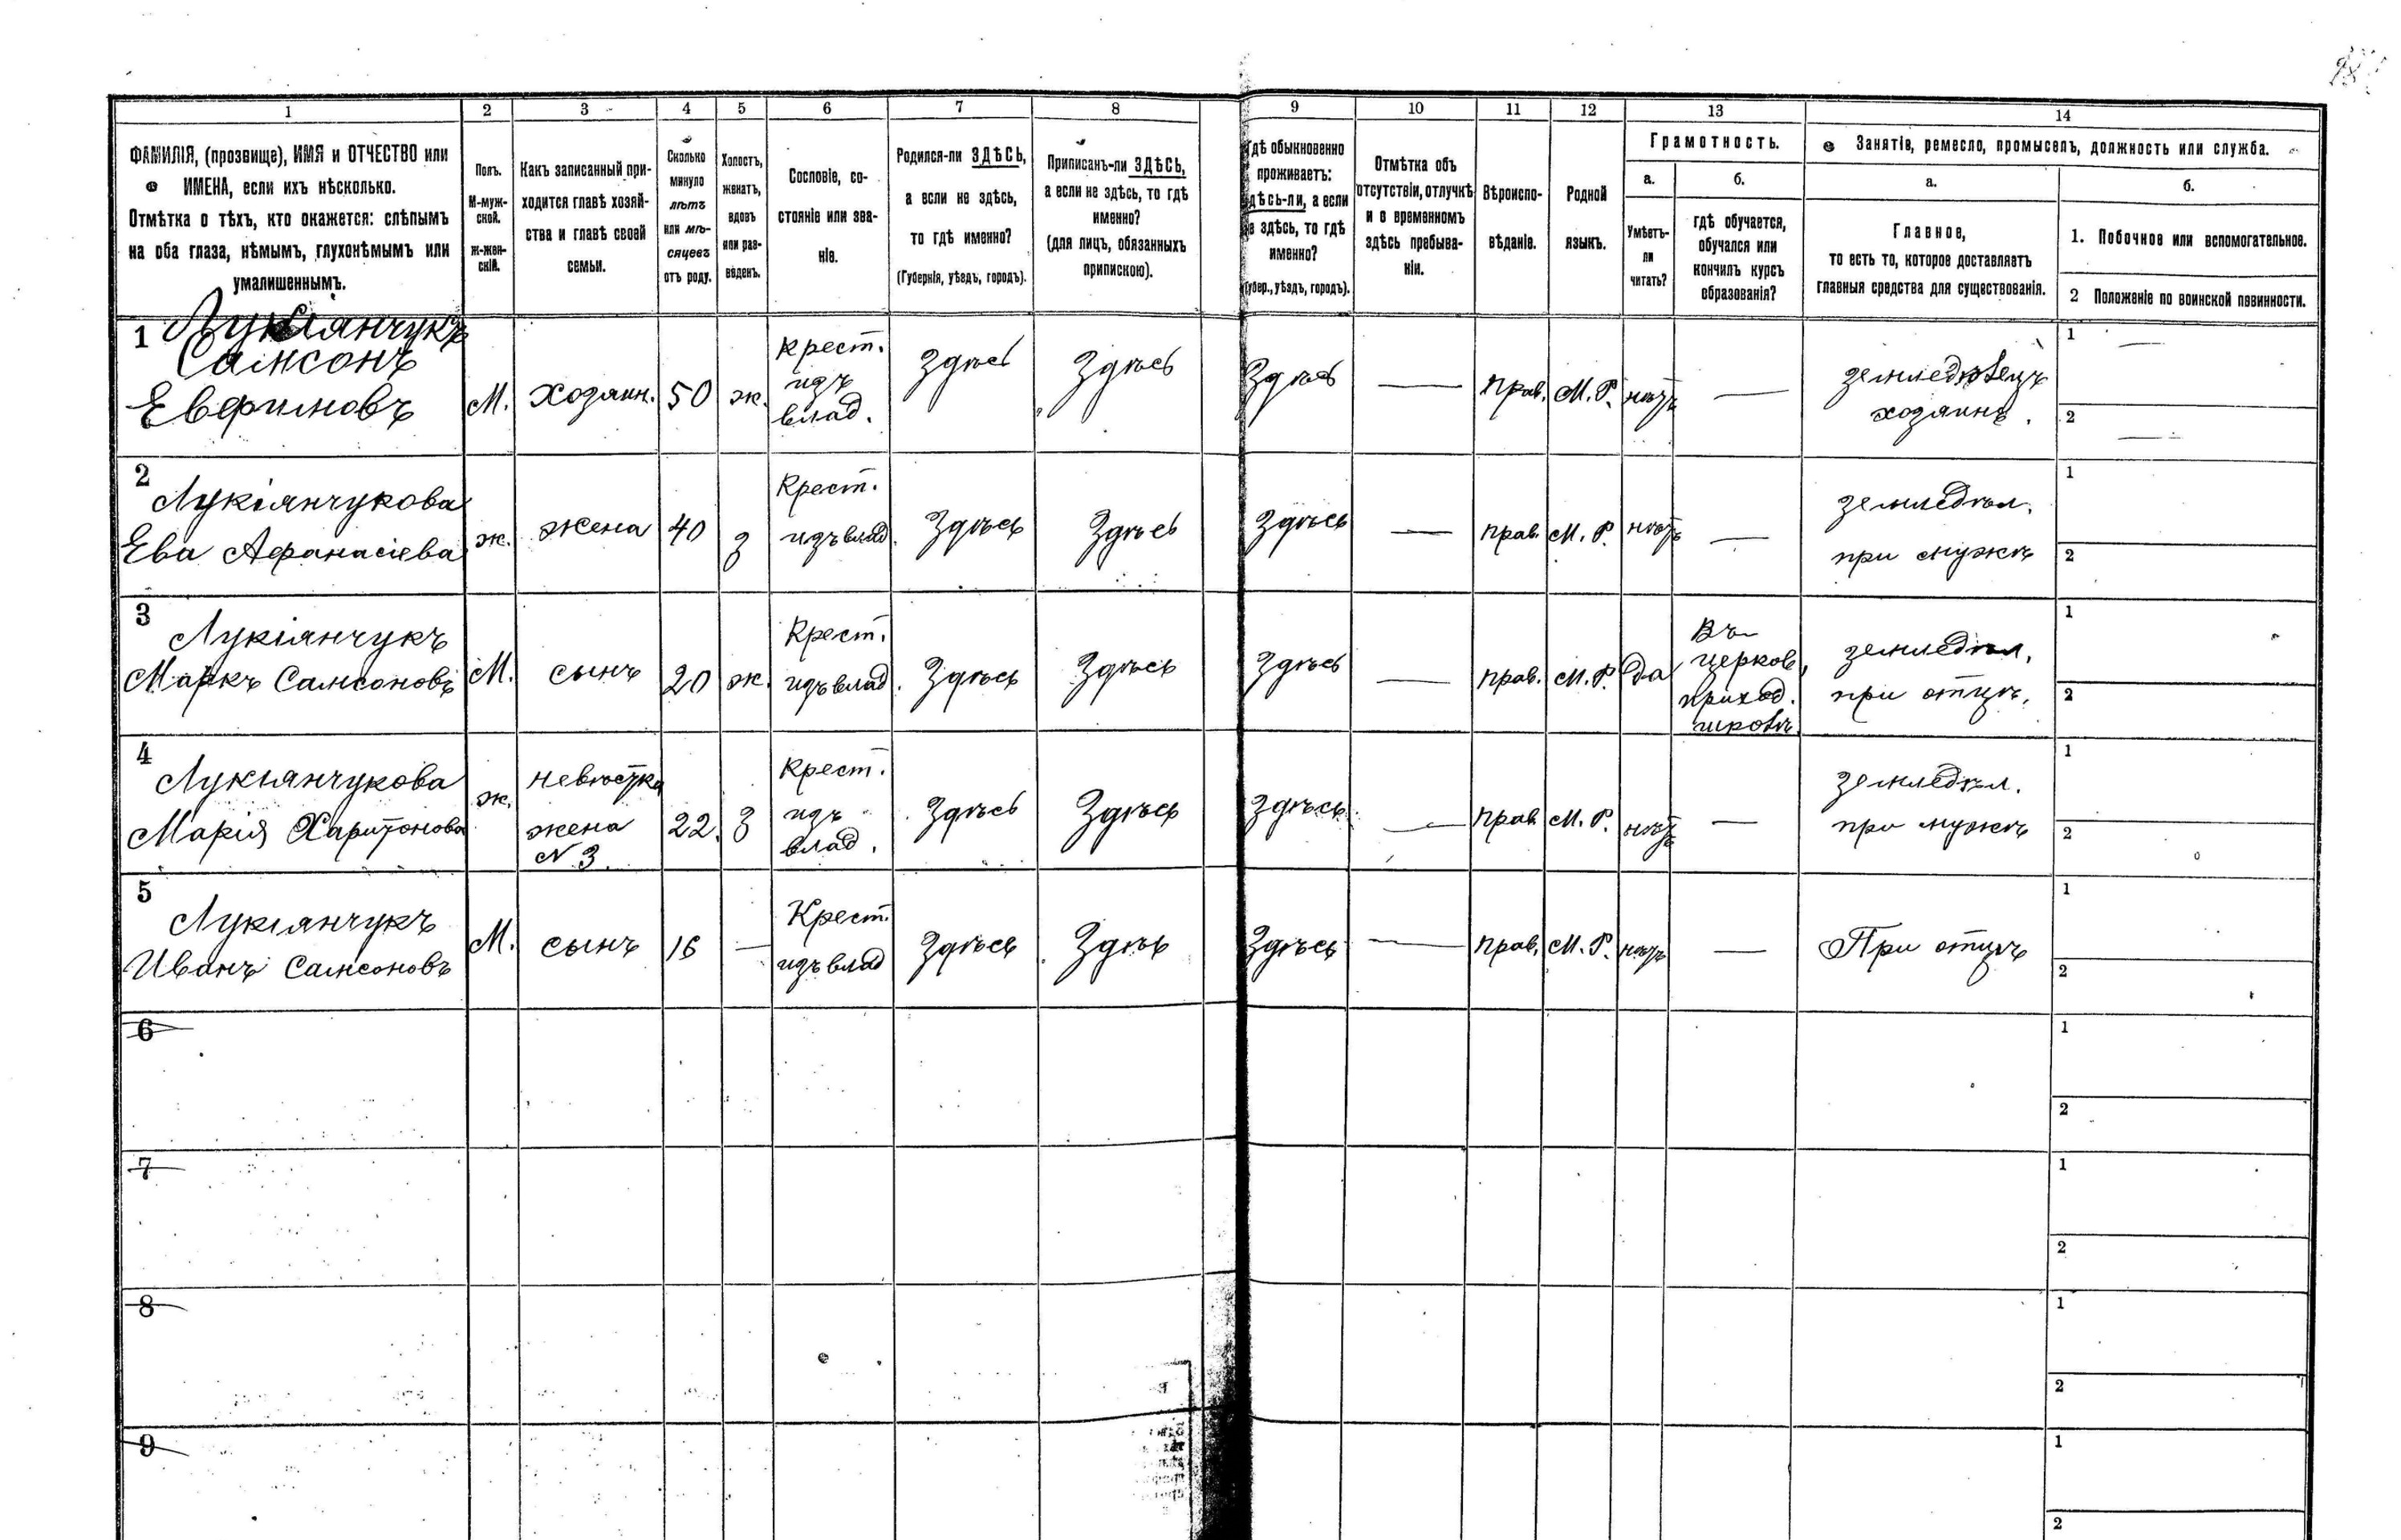 1 2 3 4 5 6 7 8 9 10 11 12 13 14
ФАМИЛІЯ, (прозвище), ИМЯ и ОТЧЕСТВО или
ИМЕНА, если ихъ нѣсколько.
Отмѣтка о тѣхъ, кто окажется: слѣпымъ
на оба глаза, нѣмымъ, глухонѣмымъ или
умалишеннымъ.
Полъ.
М-муж-
ской.
ж-жен-
скій.
Какъ записанный при-
ходится главѣ хозяй-
ства и главѣ своей
семьи.
Сколько
минуло
лѣтъ
или мѣ-
сяцевъ
отъ роду.
Холостъ,
женатъ,
вдовъ
или раз-
веденъ.
Сословіе, со-
стояніе или зва-
ніе.
Родился-ли ЗДѢСЬ,
а если не здѣсь,
то гдѣ именно?
(Губернія, уѣздъ, городъ).
Приписанъ-ли ЗДѢСЬ,
а если не здѣсь, то гдѣ
именно?
(для лицъ, обязанныхъ
припискою).
Гдѣ обыкновенно
проживаетъ:
здѣсь-ли, а если
не здѣсь, то гдѣ
именно?
(Губер., уѣздъ, городъ).
Отмѣтка объ
отсутствіи, отлучкѣ
и о временномъ
здѣсь пребыва-
ніи.
Вѣроиспо-
вѣданіе.
Родной
языкъ.
Грамотность.
а.
Умѣетъ-
ли
читать?
б.
гдѣ обучается,
обучался или
кончилъ курсъ
образованія?
Занятіе, ремесло, промыселъ, должность или служба.
а.
Главное,
то есть то, которое доставляетъ
главныя средства для существованія.
б.
1. Побочное или вспомогательное.
2 Положеніе по воинской повинности.
1 Лукіянчукъ
Самсонъ
Евфимовъ
М.
хозяин.
50
ж.
Крест.
изъ
влад.
Здѣсь
Здѣсь
Здѣсь
—
прав.
М. Р.
нѣтъ
—
земледѣлецъ
хозяинъ.
1 —
2 —
2
Лукіянчукова
Ева Афанасіева
ж.
жена
40
З
Крест.
изъ влад.
Здѣсь
Здѣсь
Здѣсь
—
прав.
М. Р.
нѣтъ
—
земледѣл.
при мужѣ
1
2
3
Лукіянчукъ
Маркъ Самсоновъ
М.
сынъ
20
ж.
Крест.
изъ влад.
Здѣсь
Здѣсь
Здѣсь
—
прав.
М. Р.
Да
Въ
церков.
приход.
школѣ.
земледѣл.
при отцѣ.
1
2
4
Лукіянчукова
Марія Харитонова
ж.
невѣстка
жена
N 3.
22.
З
Крест.
изъ
влад.
Здѣсь
Здѣсь
Здѣсь
—
прав
М. Р.
нѣтъ
—
земледѣл.
при мужѣ
1
2
5
Лукіянчукъ
Иванъ Самсоновъ
М.
сынъ
16
—
Крест.
изъ влад
Здѣсь
Здѣь
Здѣсь
—
прав.
М. Р.
нѣтъ
—
При отцѣ
1
2
6
1
2
7
1
2
8
1
2
9
1
2